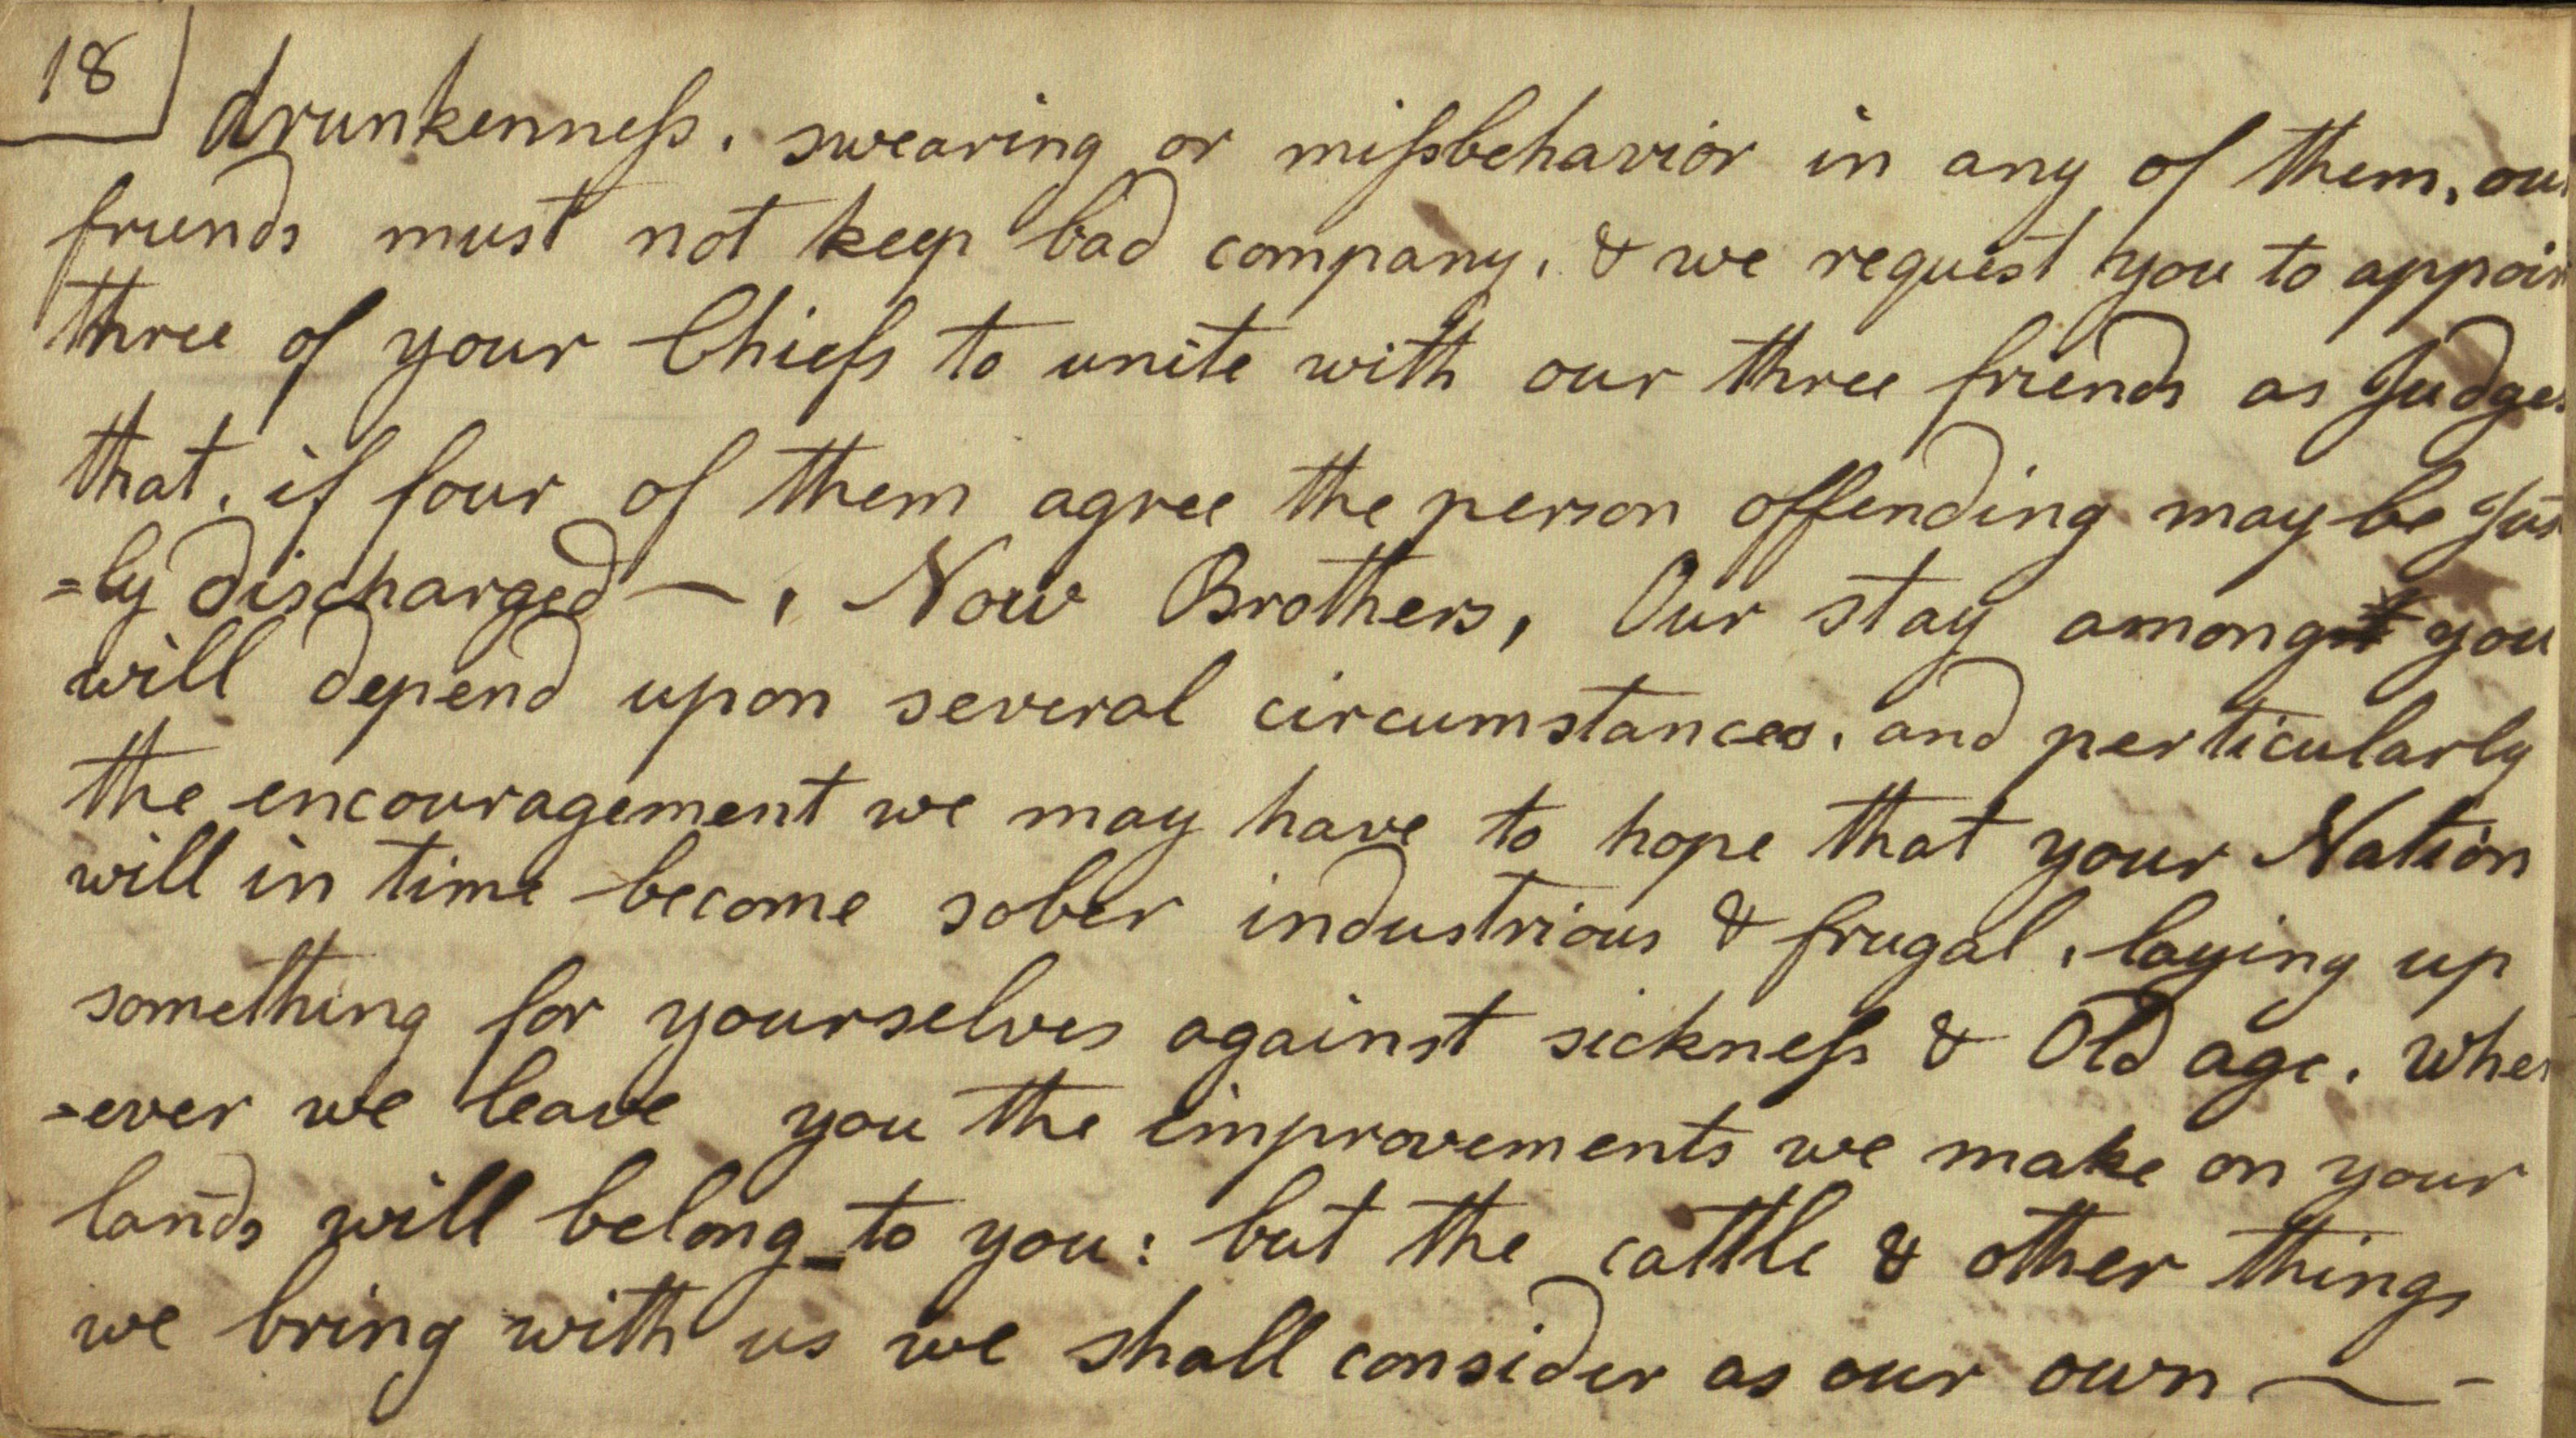 18
drunkenness, swearing or missbehavior in any of them, our
friends must not keep bad company, & we request you to appoin
three of your Chiefs to unite with our three friends as Judges
that, if four of them agree the person offending may be Just
=ly discharged —, Now Brothers, Our stay among you
will depend upon several circumstances, and perticularly
the encouragement we may have to hope that your Nation
will in time become sober industrious & frugal, laying up
something for yourselves against sickness & Old age. When
=ever we leave you the improvements we make on your
lands will belong to you: but the cattle & other things
we bring with us we shall consider as our own —